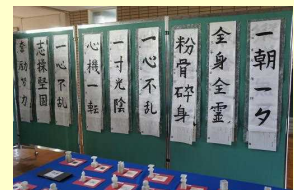 一朝一夕
全身全霊
粉骨砕身
一心不乱
一寸光陰
心機一転
一心不乱
志操堅固
奮励努力